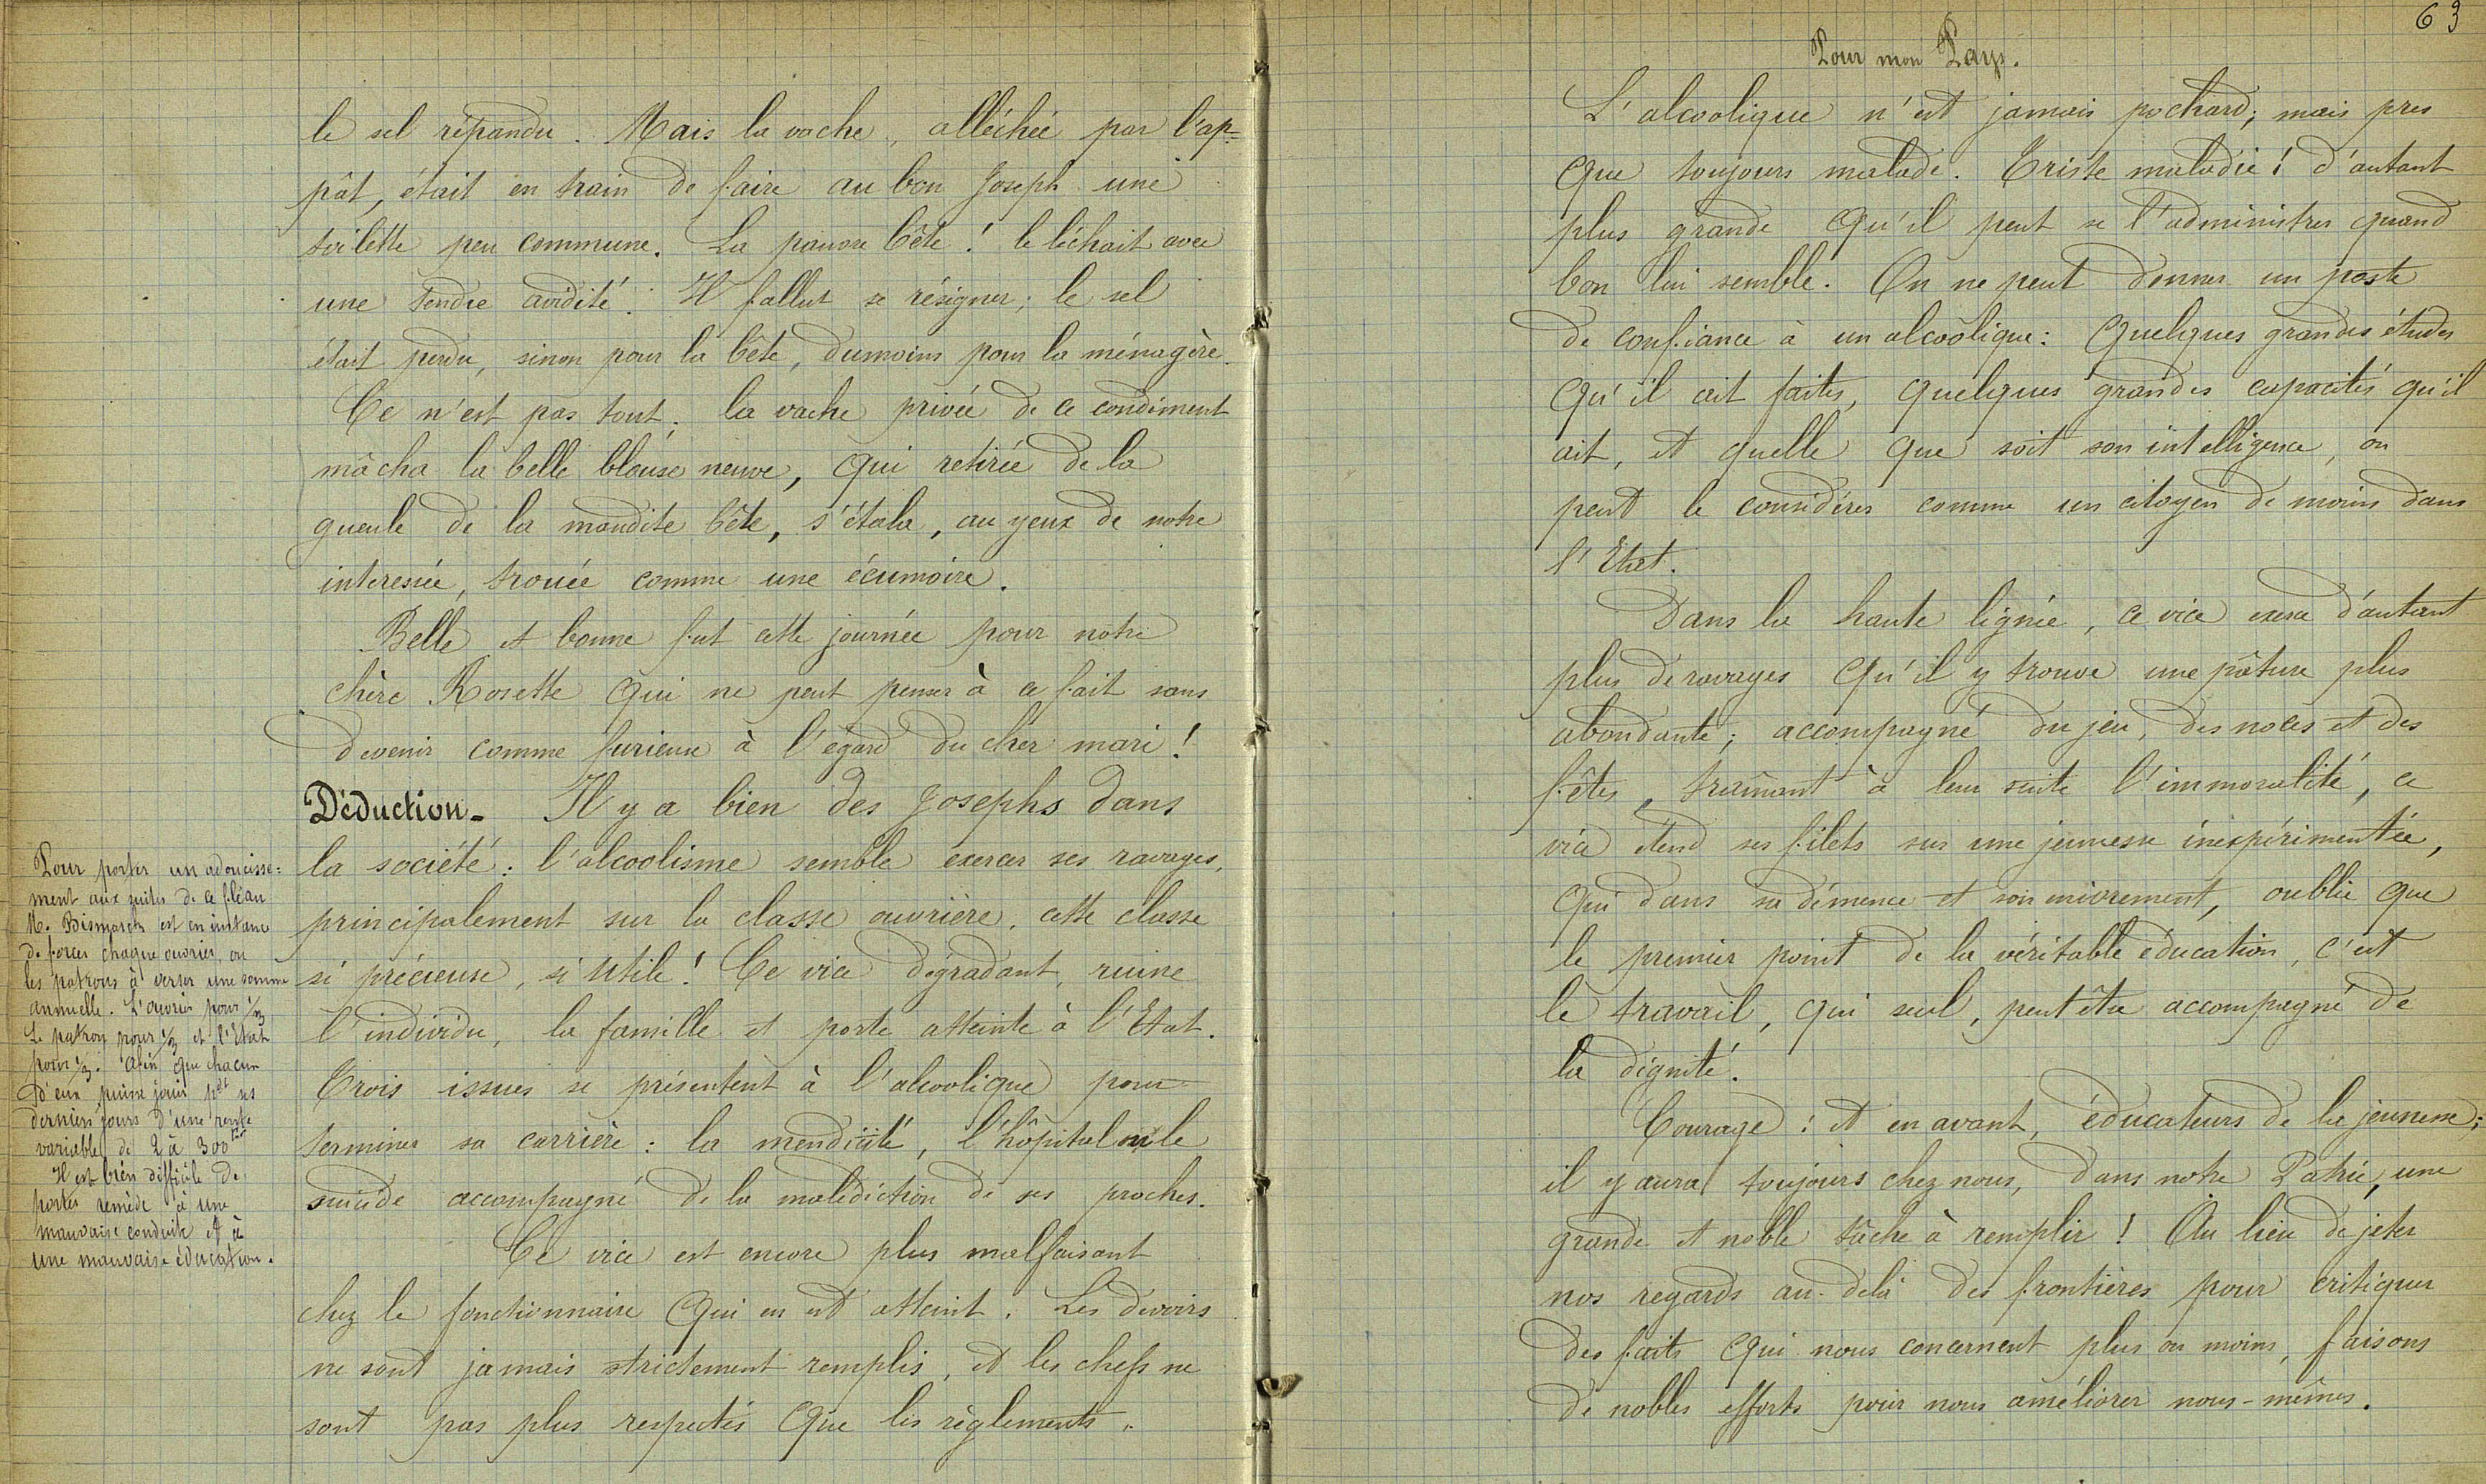 le sel répandu. Mais la vache, alléchée par l'ap-
pât, était en train de faire au bon Joseph une
toilette peu commune. La pauvre bête ! le léchait avec
une tendre avidité. Il fallut se résigner ; le sel
était perdu, sinon pour la bête, dumoins pour la ménagère.
Ce n'est pas tout. la vache privée de ce condiment
mâcha la belle blouse neuve, qui retirée de la
gueule de la maudite bête, s'étala, au yeux de notre
interessée, trouée comme une écumoire.
Belle et bonne fut cette journée pour notre
chère Rosette qui ne peut penser à ce fait sans
devenir comme furieuse à l'égard du cher mari !
Déduction - Il y a bien des Josephs dans
la société : l'alcoolisme semble exercer ses ravages,
principalement sur la classe ouvrière, cette classe
si précieuse, si utile ! Ce vice dégradant, ruine
l'individu, la famille et porte atteinte à l'Etat.
Trois issues se présentent à l'alcoolique pour
terminer sa carrière : la mendicité, l'hôpital ou le
suicide accompagné de la malédiction de ses proches.
Ce vice est encore plus malfaisant
chez le fonctionnaire qui en est atteint. Les devoirs
ne sont jamais strictement remplis, et les chefs ne
sont pas plus respectés que les règlements.
Pour porter un adoucisse=
ment aux suites de ce fléau
M. Bismarck est en instance
de forcer chaque ouvrier, ou
les patrons à verser une somme
annuelle. L'ouvrier pour 1/3
Le patron pour 1/3 et l'Etat
pour 1/3. Afin que chacun
d'eux puisse jouir pdt ses
derniers jours d'une rente
variable de 2 à 300 frs
Il est bien difficile de
porter remède à une
mauvaise conduite et à
une mauvaise éducation.
63
Pour mon Pays.
L'alcoolique n'est jamais pochard ; mais pres
que toujours malade. Triste maladie ! d'autant
plus grande qu'il peut se l'administrer quand
bon lui semble. On ne peut donner un poste
de confiance à un alcoolique : quelques grandes études
qu'il ait faites, quelques grandes capacités qu'il
ait, et quelle que soit son intelligence, on
peut le considérer comme un citoyen de moins dans
l'Etat.
Dans la haute lignée, ce vice exerce d'autant
plus de ravages qu'il y trouve une pâture plus
abondante ; accompagné du jeu, des noces et des
fêtes, traînant à leur suite l'immoralité, ce
vice étend ses filets sur une jeunesse inexpérimentée,
qui dans sa démence et son enivrement, oublie que
le premier point de la véritable éducation, c'est
le travail, qui seul, peut être accompagné de
la dignité.
Courage ! et en avant, éducateurs de la jeunesse ;
il y aura toujours chez nous, dans notre Patrie, une
grande et noble tâche à remplir ! Au lieu de jeter
nos regards au-delà des frontières pour critiquer
des faits qui nous concernent plus ou moins, faisons
de nobles efforts pour nous améliorer nous-mêmes.